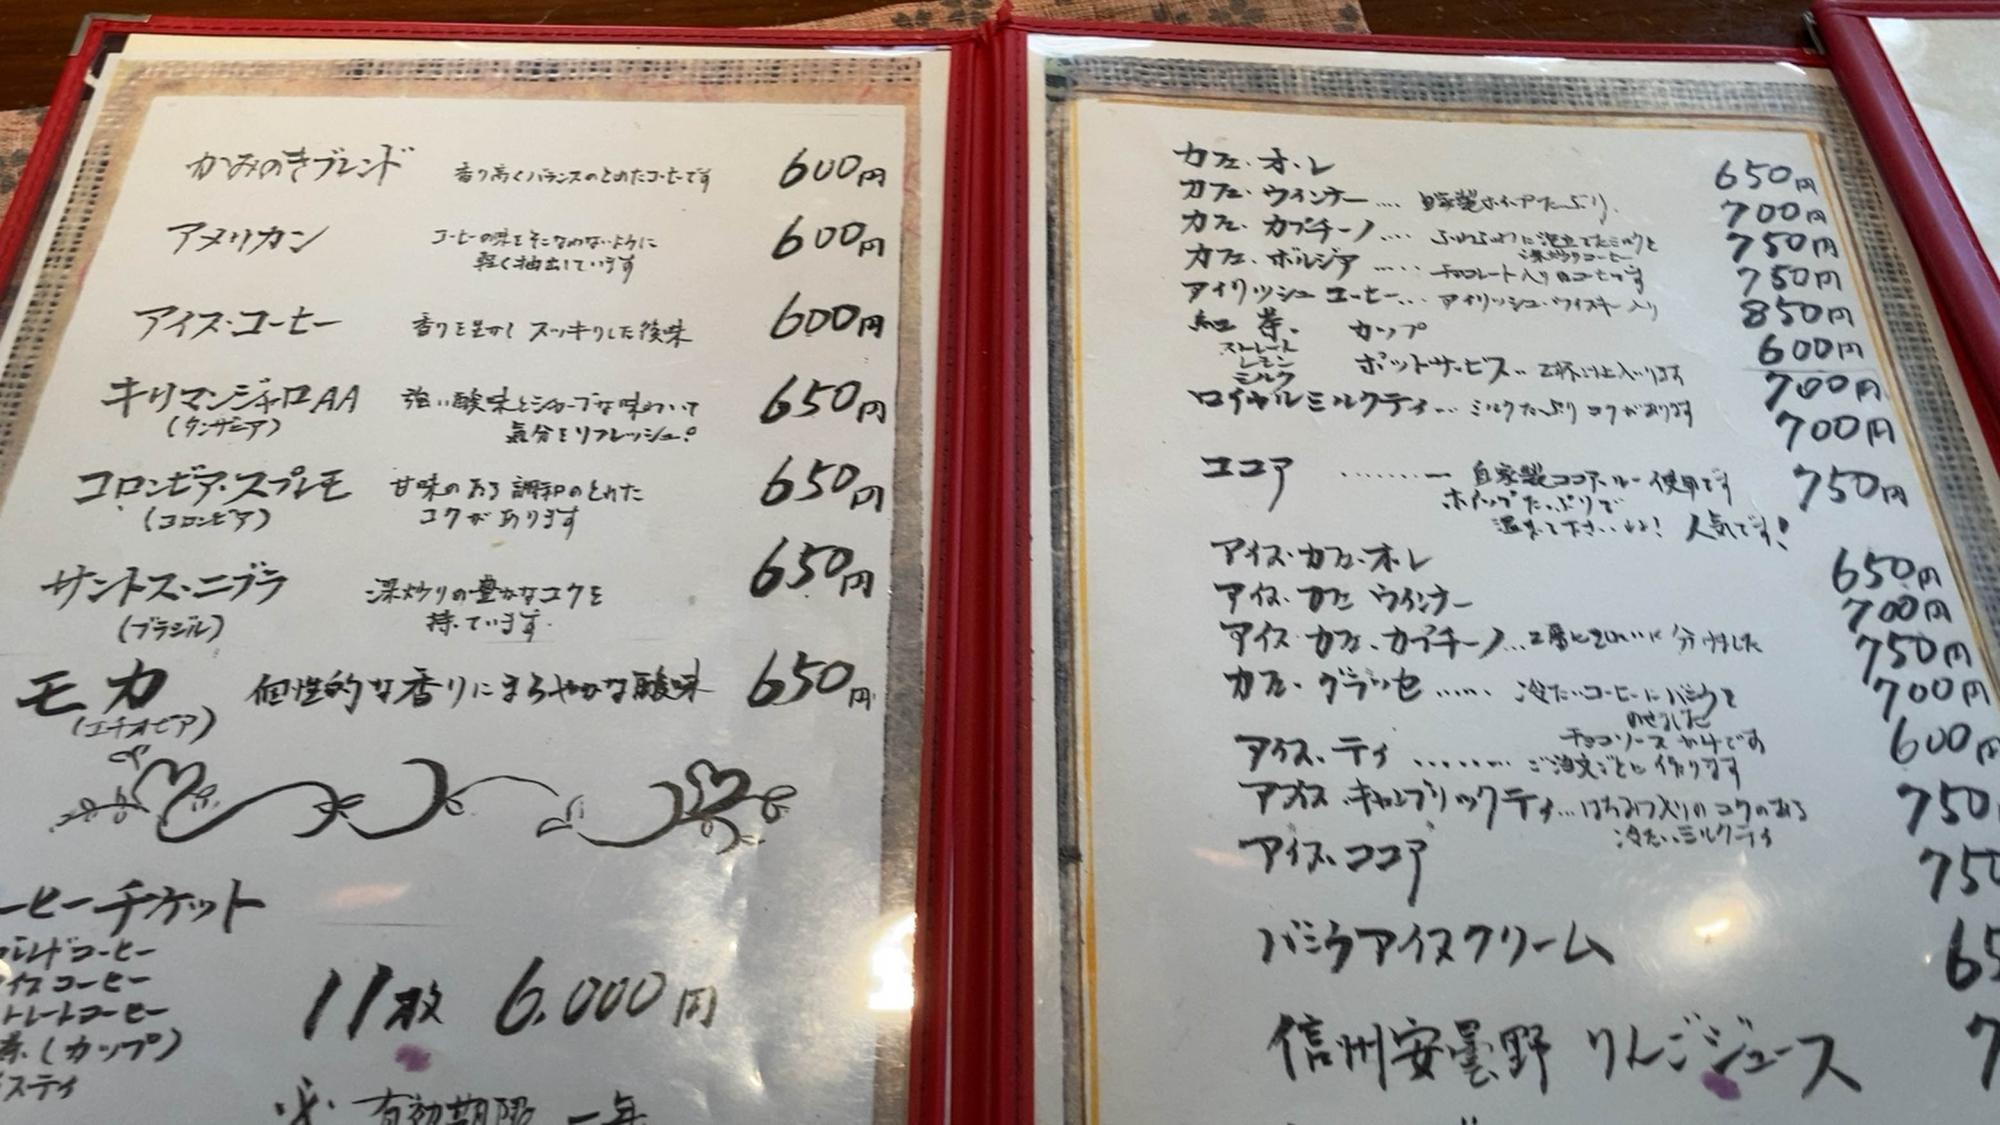 かみのきブレンド 香り高くバランスのとれたコーヒーです 600円
アメリカン コーヒーの味をそこなわないように 600円
軽く抽出しています
アイス・コーヒー 香りを生かし スッキリした後味 600円
キリマンジャロAA 強い酸味とシャープな味わいで 650円
(タンザニア) 気分をリフレッシュ!
コロンビア・スプレモ 甘味のある調和のとれた 650円
(コロンビア) コクがあります
サントス・ニブラ 深炒りの豊かなコクを 650円
(ブラジル) 持っています
モカ 個性的な香りにまろやかな酸味 650円
(エチオピア)
ーヒーチケット
ブレンドコーヒー
イスコーヒー
トレートコーヒー
茶(カップ)
スティ
11枚 6,000円
※ 有効期限 一年
カフェ・オ・レ 650円
カフェ・ウインナー.... 自家製ホイップたっぷり 700円
カフェ・カプチーノ.... ふわふわに泡立てたミルクと 750円
深炒りコーヒー
カフェ・ボルジア ..... チョコレート入りのコーヒーです 750円
アイリッシュコーヒー... アイリッシュ・ウイスキー入り 850円
紅茶. カップ 600円
ストレート
レモン ポットサービス.. 2杯以上入ります 700円
ミルク
ロイヤルミルクティ... ミルクたっぷりコクがあります 700円
ココア ........ー 自家製ココアルー使用です 750円
ホイップたっぷりで
温まって下さいね! 人気です!
アイス・カフェ・オ・レ 650円
アイス・カフェ ウインナー 700円
アイス・カフェ・カプチーノ...2層にきれいに分けました 750円
カフェ・グラッセ ..... 冷たいコーヒーにバニラを 700円
のせました
チョコソースがけです
アイス・ティ ........ ご注文ごとに作ります 600円
アイス・キャンブリックティ...はちみつ入りのコクのある 750
冷たいミルクティ
アイス・ココア 750
バニラアイスクリーム 65
信州安曇野 りんごジュース 7